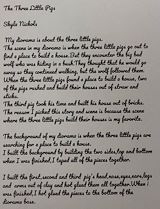 The Three Little Pigs
Skyla Nichols
My diorama is about the three little pigs.
The scene in my diorama is when the three little pigs go out to
find a place to build a house. But they encounter the big bad
wolf who was hiding in a bush. They thought that he would go
away so they continued walking, but the wolf followed them.
When the three little pigs found a place to build a house, two
of the pigs rushed and build their houses out of straw and
sticks.
The third pig took his time and built his house out of bricks.
The reason I picked this story and scene is because the scene
where the three little pigs build their houses is my favorite.
The background of my diorama is when the three little pigs are
searching for a place to build a house.
I built the background by building the two sides, top and bottom
when I was finished, I taped all of the pieces together.
I built the first, second and third pig's head, nose, eyes, ears, legs
and arms out of clay and hot glued them all together. When I
was finished, I hot glued the pieces to the bottom of the
diorama base.